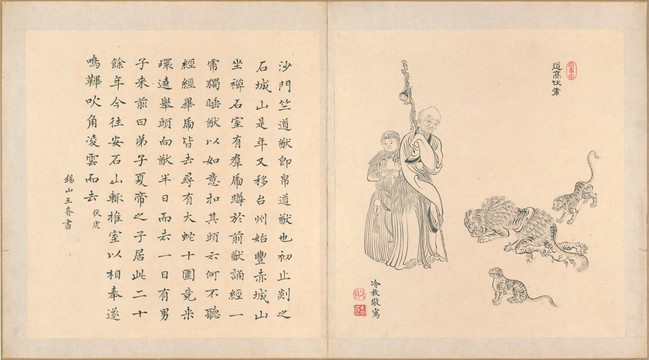 道高伏虎
冷枚敬寫
沙門竺道猷即帛道猷也初止剡之
石城山是年又移台州始豐赤城山
坐禪石室有羣虎蹲於前猷誦經一
虎獨睡猷以如意扣其頭云何不聽
經經畢虎皆去尋有大蛇十圍竟來
環遶舉頭向猷半日而去一日有男
子來前曰弟子夏帝之子居此二十
餘年今往安石山輒推室以相奉遂
鳴鞞吹角凌雲而去 伏虎
錫山王 書